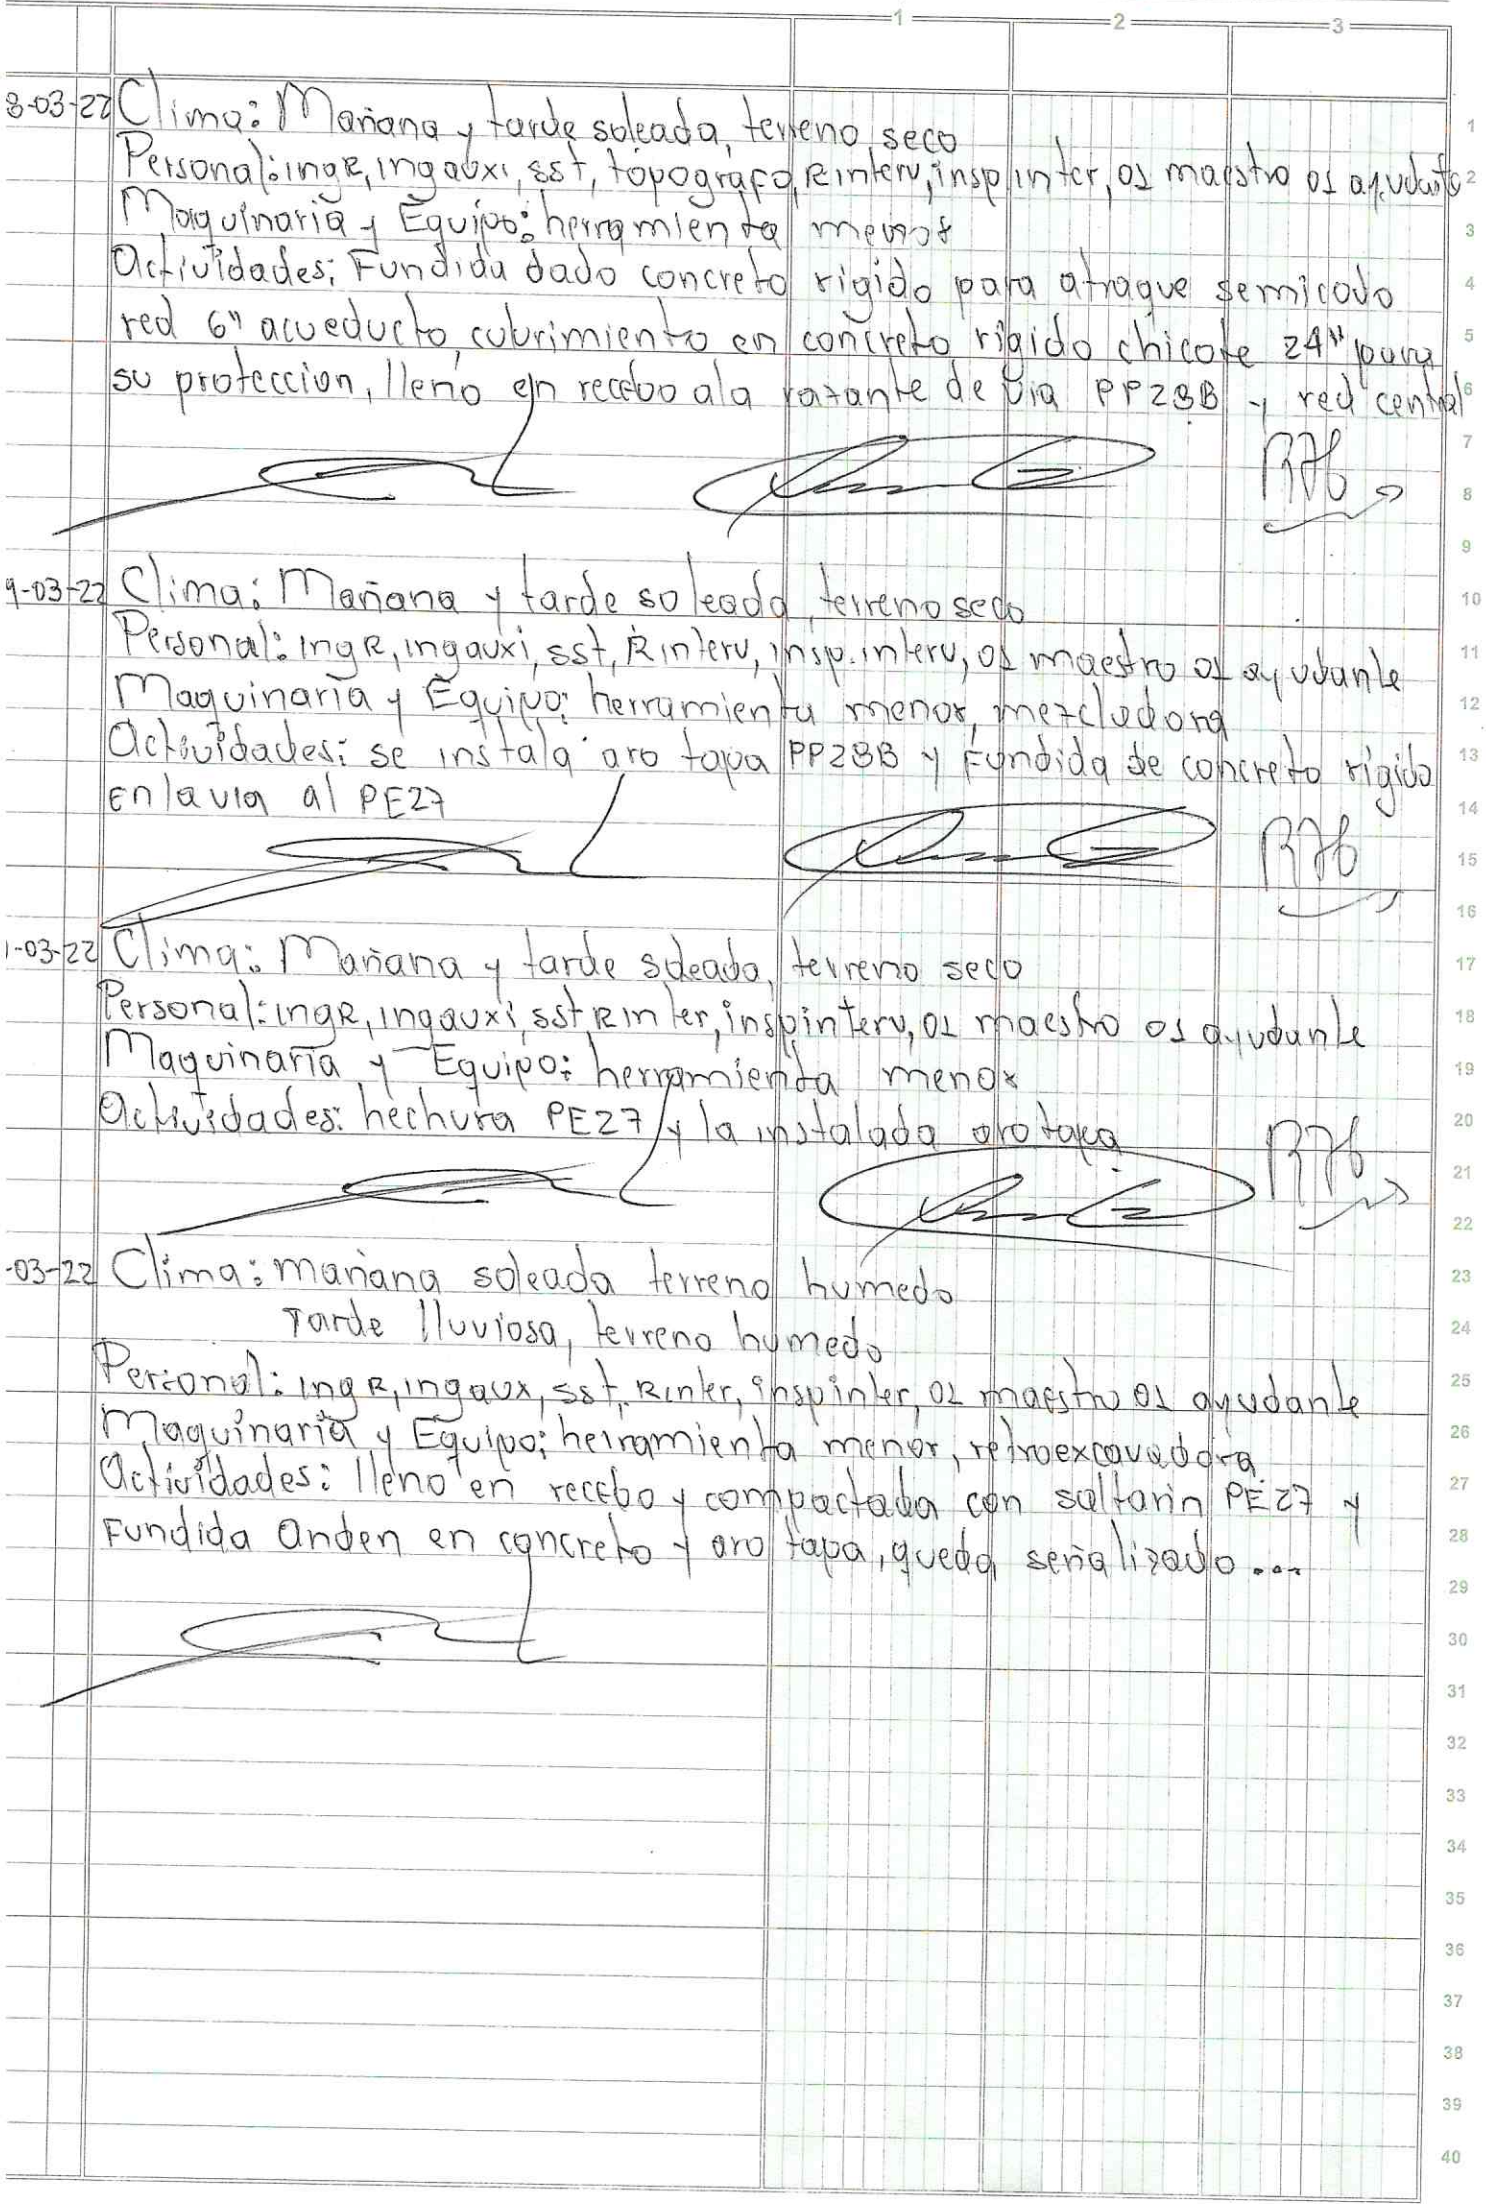 1 2 3
8-03-22 Clima: Mañana y tarde soleada, terreno seco
Personal: ingR, ingauxi, sst, topografo, Rinterv, insp inter, 01 maestro 01 ayudante
Maquinaria y Equipo: herramienta menor
Actividades: Fundida dado concreto rigido para atraque semicodo
red 6" acueducto, cubrimiento en concreto rigido chicote 24" para
su proteccion, lleno en recebo ala razante de via PP28B y red central
9-03-22 Clima: Mañana y tarde soleada, terreno seco
Personal: ingR, ingauxi, sst, Rinterv, insp.interv, 01 maestro 01 ayudante
Maquinaria y Equipo: herramienta menor, mezcladora
Actividades: se instala aro tapa PP28B y Fundida de concreto rigido
En la via al PE27
1-03-22 Clima: Mañana y tarde soleada, terreno seco
Personal: ingR, ingauxi, sst Rinter, inspinterv, 01 maestro 01 ayudante
Maquinaria y Equipo: herramienta menor
Actividades: hechura PE27 y la instalada aro tapa
-03-22 Clima: mañana soleada terreno humedo
Tarde lluviosa, terreno humedo
Personal: ingR, ingaux, sst, Rinter, inspinter, 01 maestro 01 ayudante
Maquinaria y Equipo: herramienta menor, retroexcavadora
Actividades: lleno en recebo y compactada con saltarin PE27 y
Fundida Anden en concreto y aro tapa, queda señalizado ...
1
2
3
4
5
6
7
8
9
10
11
12
13
14
15
16
17
18
19
20
21
22
23
24
25
26
27
28
29
30
31
32
33
34
35
36
37
38
39
40